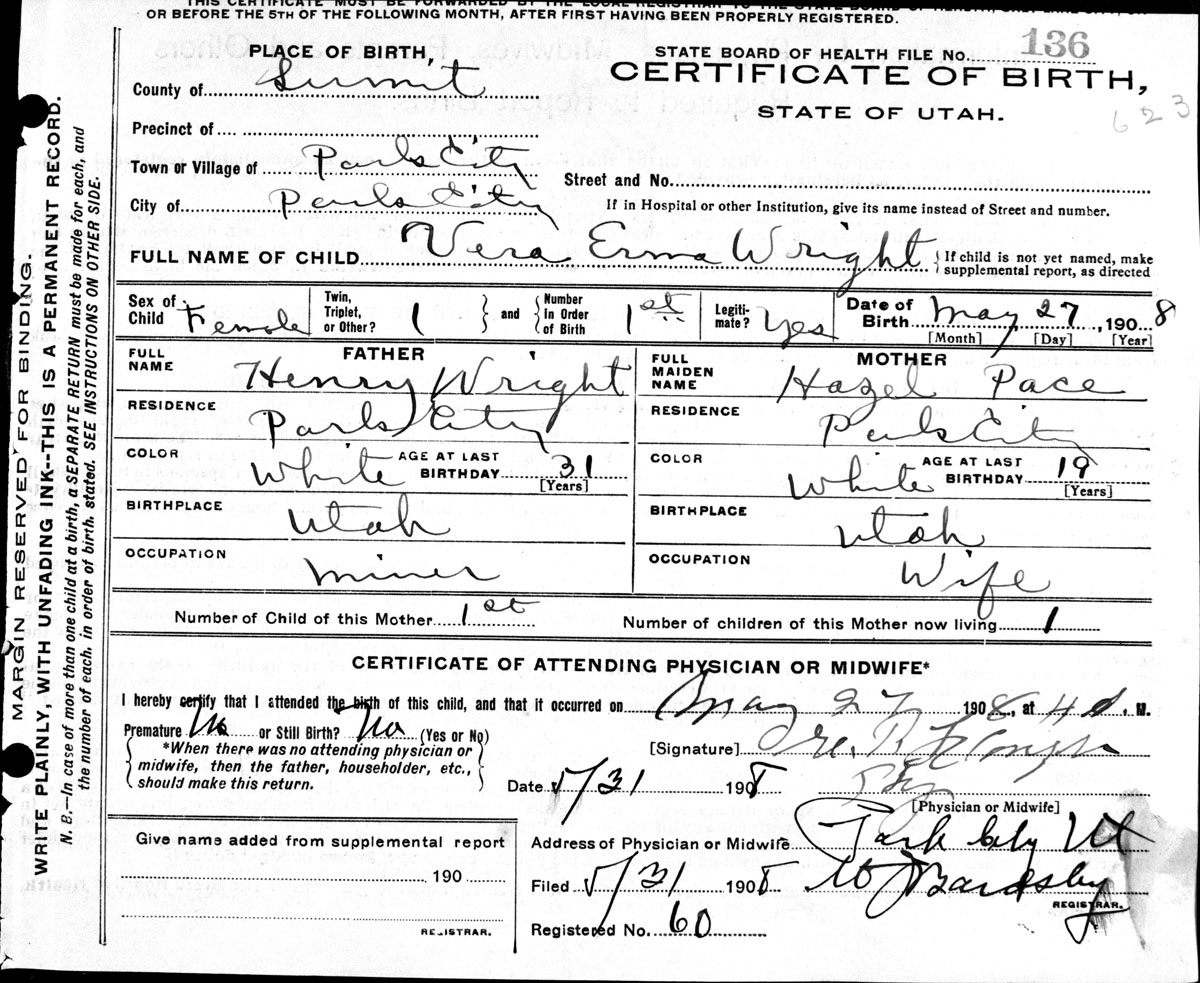 THIS CERTIFICATE MUST BE FORWARDED BY THE LOCAL REGISTRAR TO THE STATE BOARD OF HEALTH
OR BEFORE THE 5TH OF THE FOLLOWING MONTH, AFTER FIRST HAVING BEEN PROPERLY REGISTERED.
PLACE OF BIRTH,
County of Summit
Precinct of
Town or Village of Park City
City of Park City
STATE BOARD OF HEALTH FILE No. 136
CERTIFICATE OF BIRTH,
STATE OF UTAH.
623
Street and No.
If in Hospital or other Institution, give its name instead of Street and number.
FULL NAME OF CHILD Vera Erma Wright { If child is not yet named, make
supplemental report, as directed
Sex of Child Female
Twin, Triplet, or Other? 1 } and { Number in Order of Birth 1st
Legiti-mate? Yes
Date of Birth May 27, 1908
[Month] [Day] [Year]
FATHER
FULL NAME Henry Wright
RESIDENCE Park City
COLOR White AGE AT LAST BIRTHDAY 31
[Years]
BIRTHPLACE Utah
OCCUPATION Miner
MOTHER
FULL MAIDEN NAME Hazel Pace
RESIDENCE Park City
COLOR White AGE AT LAST BIRTHDAY 19
[Years]
BIRTHPLACE Utah
OCCUPATION Wife
Number of Child of this Mother 1st Number of children of this Mother now living 1
CERTIFICATE OF ATTENDING PHYSICIAN OR MIDWIFE*
I hereby certify that I attended the birth of this child, and that it occurred on May 27 1908, at 4 a. M.
Premature No or Still Birth? No (Yes or No)
*When there was no attending physician or
midwife, then the father, householder, etc.,
should make this return.
[Signature]
Date 5/31 1908
[Physician or Midwife]
Address of Physician or Midwife Park City Ut
Filed 5/31 1908 Bardsley
REGISTRAR.
Registered No. 60
Give name added from supplemental report
190
REGISTRAR.
MARGIN RESERVED FOR BINDING.
WRITE PLAINLY, WITH UNFADING INK--THIS IS A PERMANENT RECORD.
N. B.--In case of more than one child at a birth, a SEPARATE RETURN must be made for each, and
the number of each, in order of birth, stated. SEE INSTRUCTIONS ON OTHER SIDE.